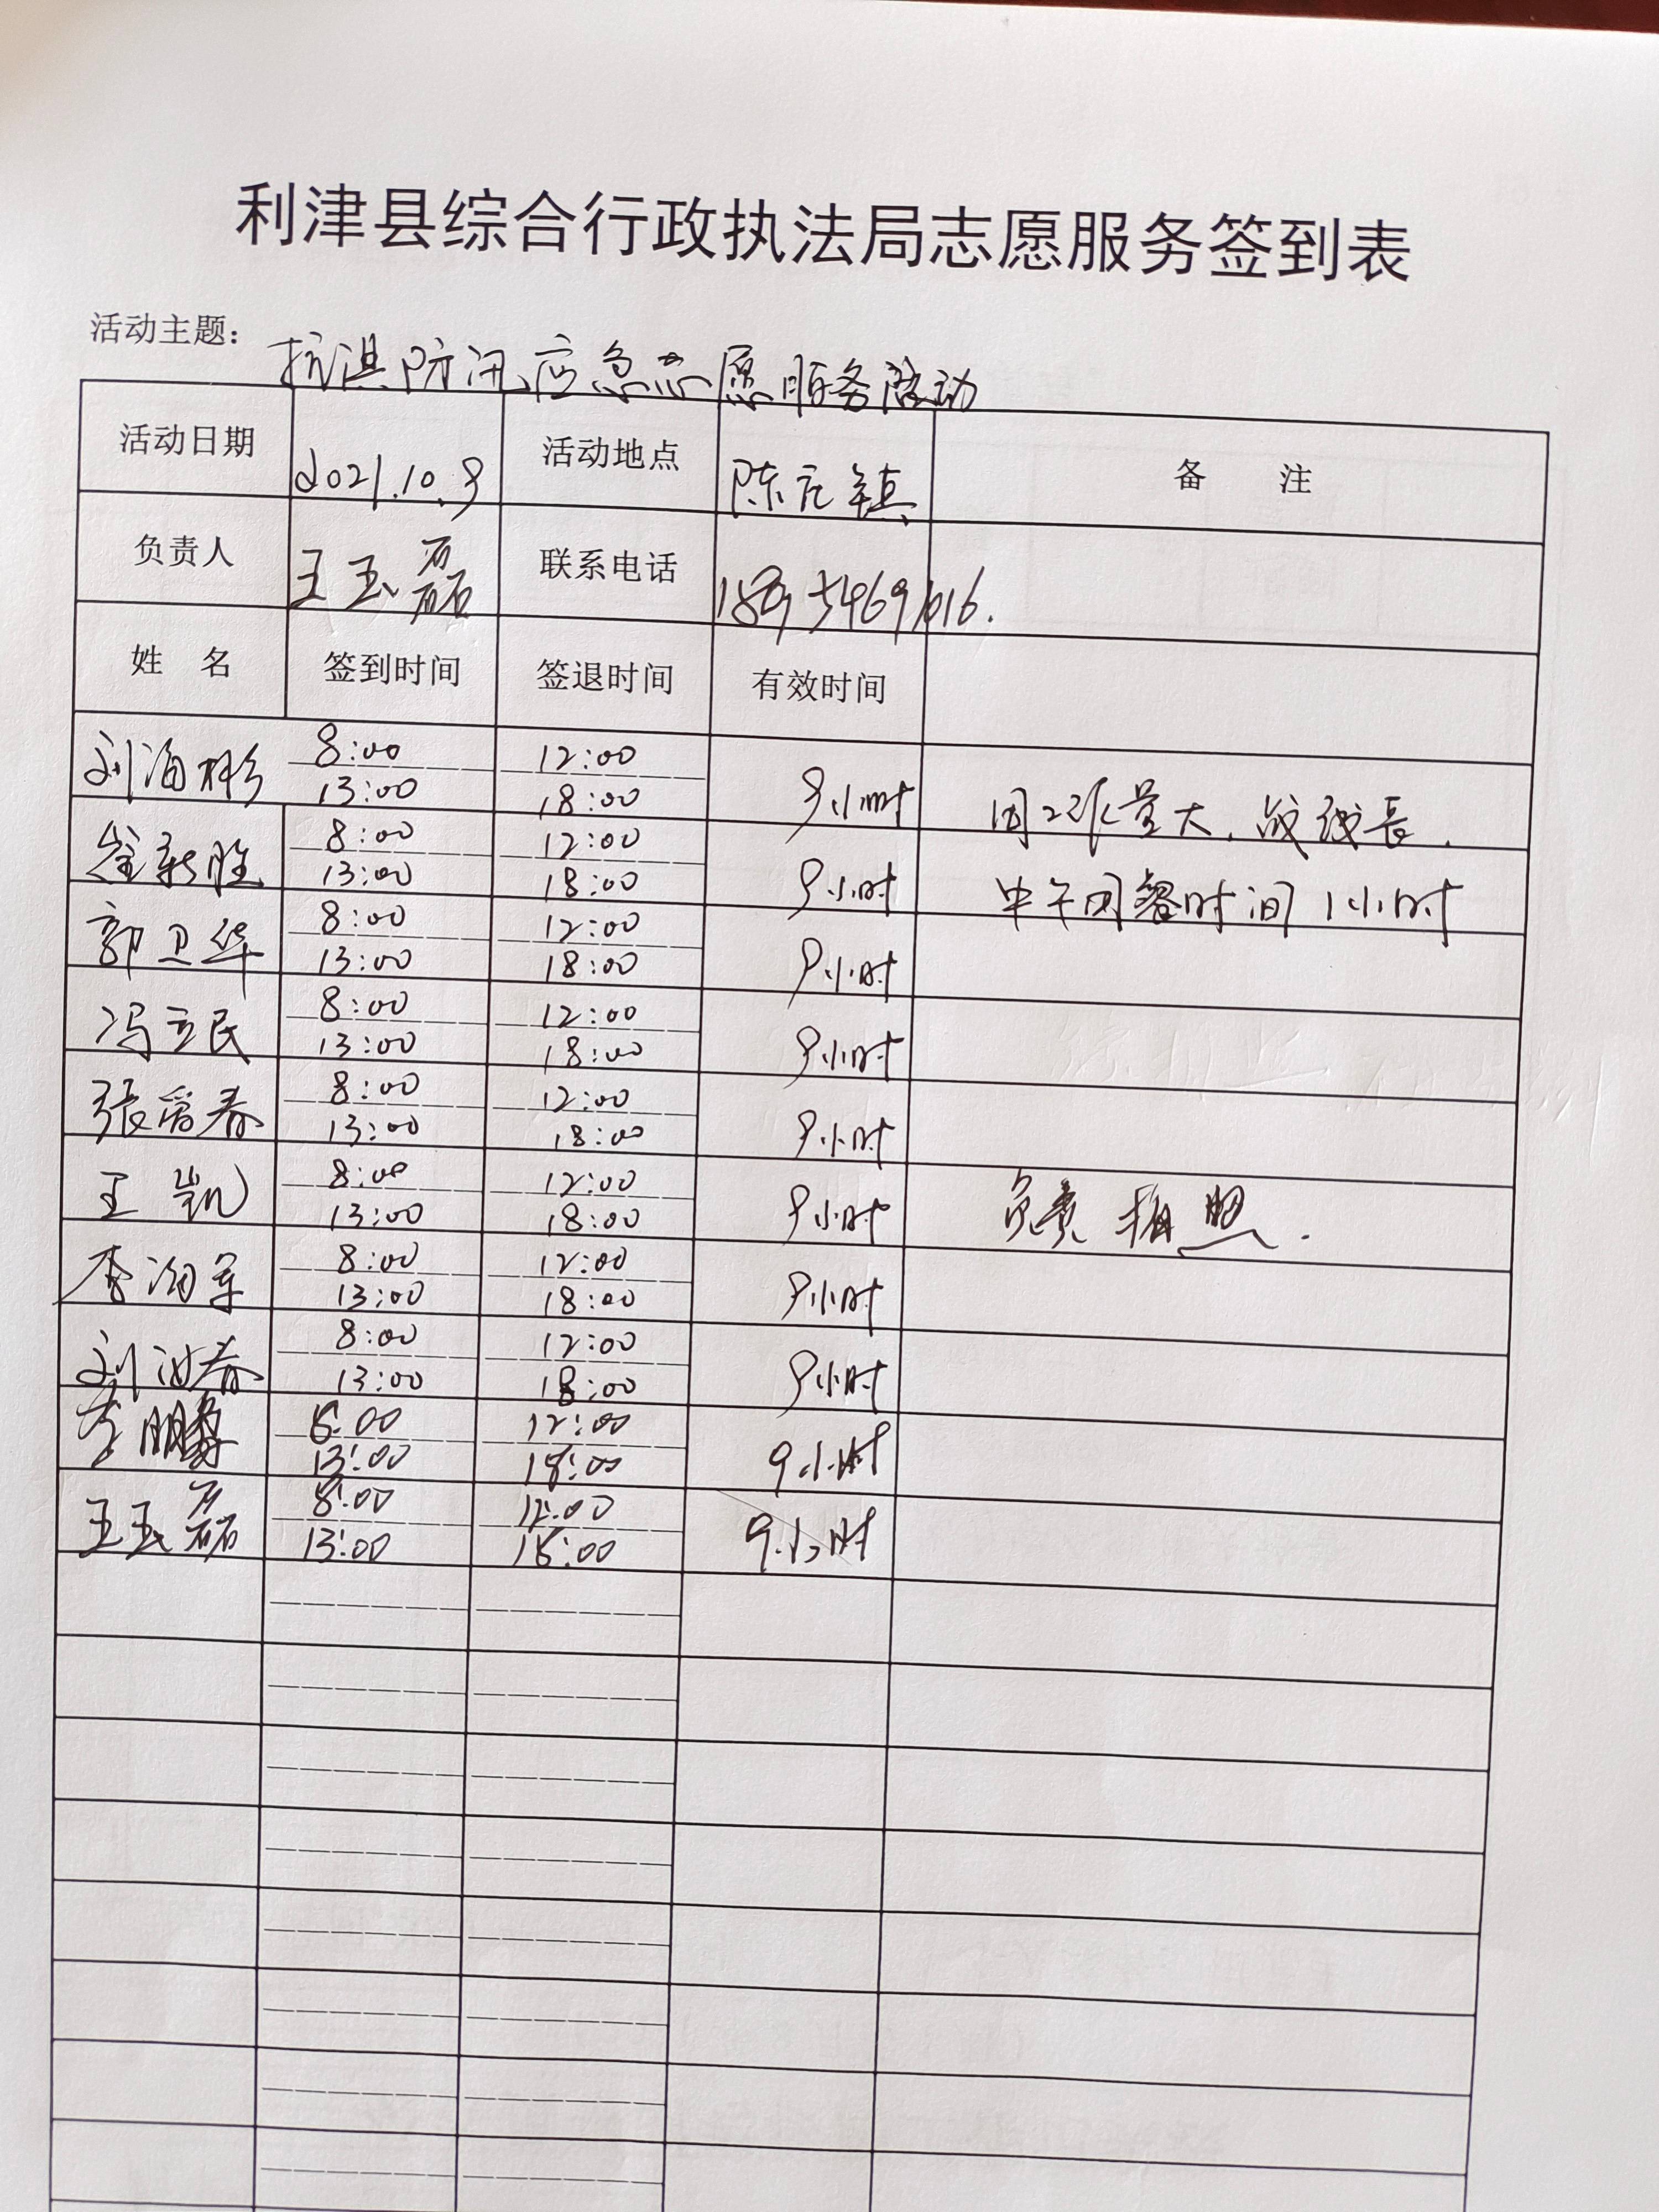 利津县综合行政执法局志愿服务签到表
活动主题: 抗洪防汛应急志愿服务活动
活动日期 2021.10.9 活动地点 陈庄镇 备 注
负责人 王玉磊 联系电话
姓 名 签到时间 签退时间 有效时间
刘海彬 8:00 12:00
13:00 18:00 9小时 因工作量大,战线长.
崔新胜 8:00 12:00
13:00 18:00 9小时 中午用餐时间1小时
郭卫华 8:00 12:00
13:00 18:00 9小时
冯立民 8:00 12:00
13:00 18:00 9小时
张爱春 8:00 12:00
13:00 18:00 9小时
王凯 8:00 12:00
13:00 18:00 9小时 负责拍照.
李 8:00 12:00
13:00 18:00 9小时
刘 春 8:00 12:00
13:00 18:00 9小时
李鹏 8:00 12:00
13:00 18:00 9小时
王玉磊 8:00 12:00
13:00 18:00 9小时